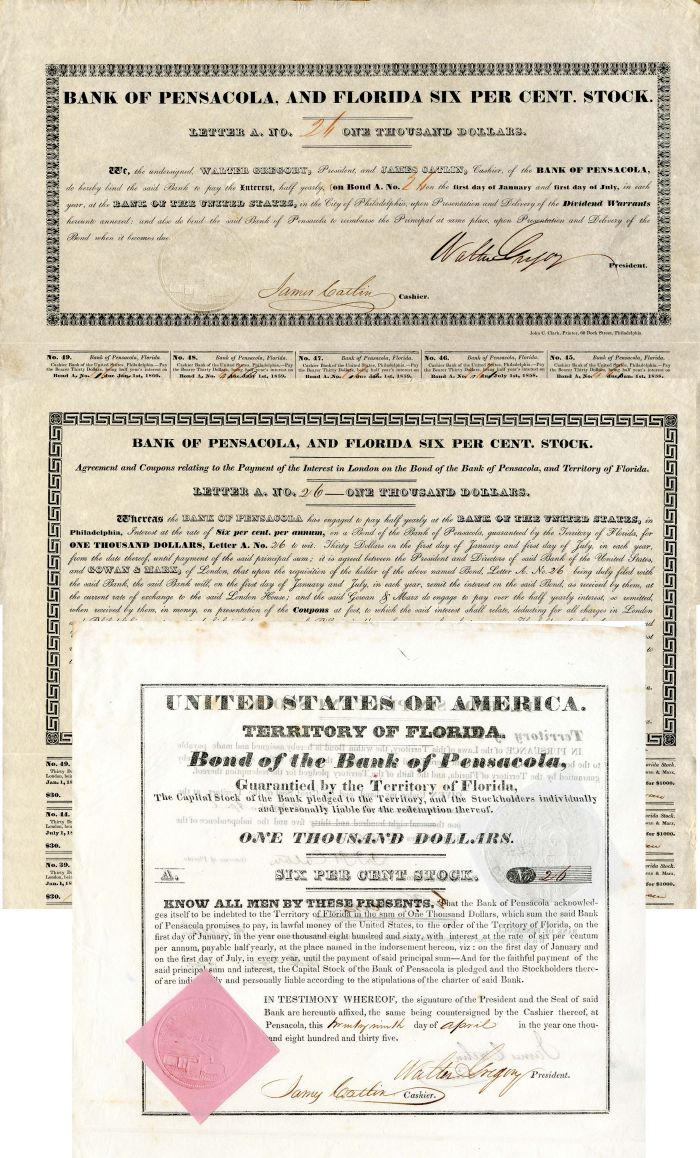 BANK OF PENSACOLA, AND FLORIDA SIX PER CENT. STOCK.
LETTER A. NO. 26 ONE THOUSAND DOLLARS.
We, the undersigned, WALTER GREGORY, President, and JAMES CATLIN, Cashier, of the BANK OF PENSACOLA,
do hereby bind the said Bank to pay the Interest, half yearly, (on Bond A. No. 26 on the first day of January and first day of July, in each
year, at the BANK OF THE UNITED STATES, in the City of Philadelphia, upon Presentation and Delivery of the Dividend Warrants
hereunto annexed: and also do bind the said Bank of Pensacola to reimburse the Principal at same place, upon Presentation and Delivery of the
Bond when it becomes due
Walter Gregory President.
James Catlin Cashier.
John C. Clark, Printer, 60 Dock Street, Philadelphia.
No. 49. Bank of Pensacola, Florida. No. 48. Bank of Pensacola, Florida. No. 47. Bank of Pensacola, Florida. No. 46. Bank of Pensacola, Florida. No. 45. Bank of Pensacola, Florida.
Cashier Bank of the United States, Philadelphia.—Pay Cashier Bank of the United States, Philadelphia.—Pay Cashier Bank of the United States, Philadelphia.—Pay Cashier Bank of the United States, Philadelphia.—Pay Cashier Bank of the United States, Philadelphia.—Pay
the Bearer Thirty Dollars, being half year's interest on the Bearer Thirty Dollars, being half year's interest on the Bearer Thirty Dollars, being half year's interest on the Bearer Thirty Dollars, being half year's interest on the Bearer Thirty Dollars, being half year's interest on
BANK OF PENSACOLA, AND FLORIDA SIX PER CENT. STOCK.
Agreement and Coupons relating to the Payment of the Interest in London on the Bond of the Bank of Pensacola, and Territory of Florida.
LETTER A. NO. 26—ONE THOUSAND DOLLARS.
Whereas the BANK OF PENSACOLA has engaged to pay half yearly at the BANK OF THE UNITED STATES, in
Philadelphia, Interest at the rate of Six per cent. per annum, on a Bond of the Bank of Pensacola, guaranteed by the Territory of Florida, for
ONE THOUSAND DOLLARS, Letter A. No. 26 to wit: Thirty Dollars on the first day of January and first day of July, in each year,
from the date thereof, until payment of the said principal sum; it is agreed between the President and Directors of said Bank of the United States,
and GOWAN & MARX, of London, that upon the requisition of the holder of the above named Bond, Letter A. No. 26 being duly filed with
the said Bank, the said Bank will, on the first day of January and July, in each year, remit the interest on the said Bond, as received by them, at
the current rate of exchange to the said London House; and the said Gowan & Marx do engage to pay over the half yearly interest, so remitted,
when received by them, in money, on presentation of the Coupons at foot, to which the said interest shall relate, deducting for all charges in London
No. 49.
Thirty
London,
Jan. 1, 18
$30.
No. 44.
Thirty
London,
July 1, 18
$30.
No. 39.
Thirty
London,
Jan. 1, 18
$30.
Florida Stock.
& Marx,
for $1000.
Florida Stock.
& Marx,
for $1000.
Florida Stock.
& Marx,
for $1000.
UNITED STATES OF AMERICA.
TERRITORY OF FLORIDA.
Bond of the Bank of Pensacola,
Guarantied by the Territory of Florida,
The Capital Stock of the Bank pledged to the Territory, and the Stockholders individually
and personally liable for the redemption thereof.
ONE THOUSAND DOLLARS.
A. SIX PER CENT STOCK. No 26
KNOW ALL MEN BY THESE PRESENTS, That the Bank of Pensacola acknowled-
ges itself to be indebted to the Territory of Florida in the sum of One Thousand Dollars, which sum the said Bank
of Pensacola promises to pay, in lawful money of the United States, to the order of the Territory of Florida, on the
first day of January, in the year one thousand eight hundred and sixty, with interest at the rate of six per centum
per annum, payable half yearly, at the place named in the indorsement hereon, viz: on the first day of January and
on the first day of July, in every year, until the payment of said principal sum—And for the faithful payment of the
said principal sum and interest, the Capital Stock of the Bank of Pensacola is pledged and the Stockholders there-
of are individually and personally liable according to the stipulations of the charter of said Bank.
IN TESTIMONY WHEREOF, the signature of the President and the Seal of said
Bank are hereunto affixed, the same being countersigned by the Cashier thereof, at
Pensacola, this twenty ninth day of april in the year one thou-
sand eight hundred and thirty five.
Walter Gregory President.
James Catlin Cashier.